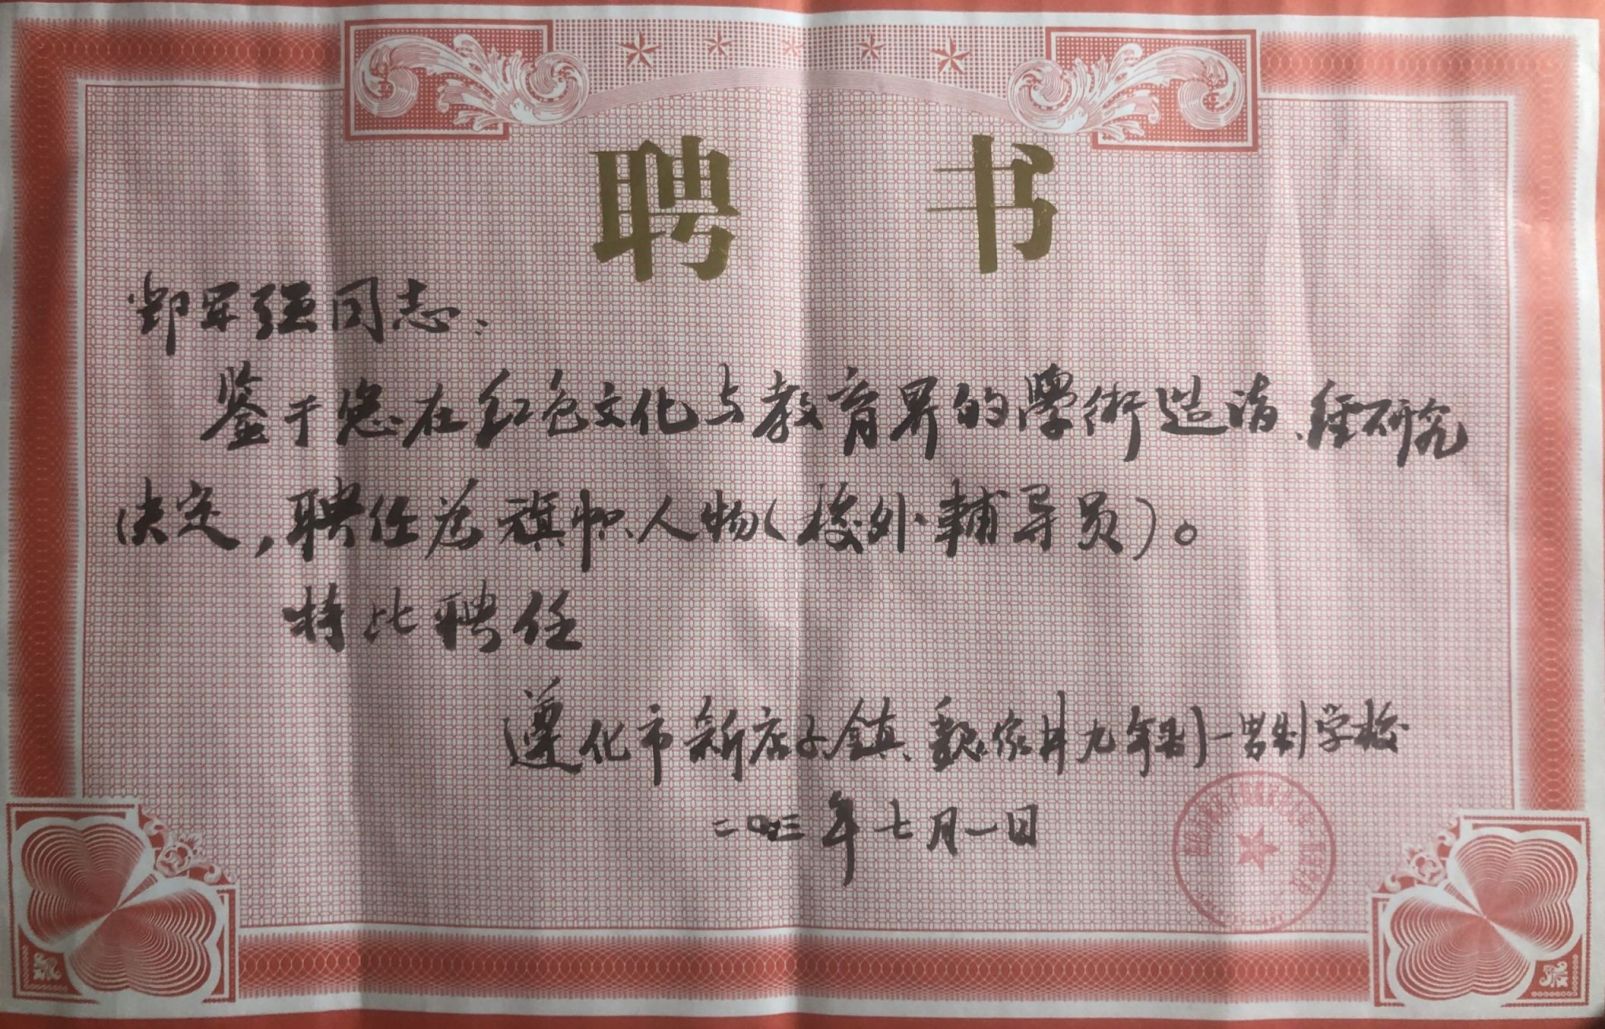 聘书
郑军强同志：
鉴于您在红色文化与教育界的學術造诣、经研究
决定，聘任为旗帜人物（校外輔导员）。
特此聘任
遵化市新店子鎮、魏家井九年制一贯制学校
二〇二三年七月一日